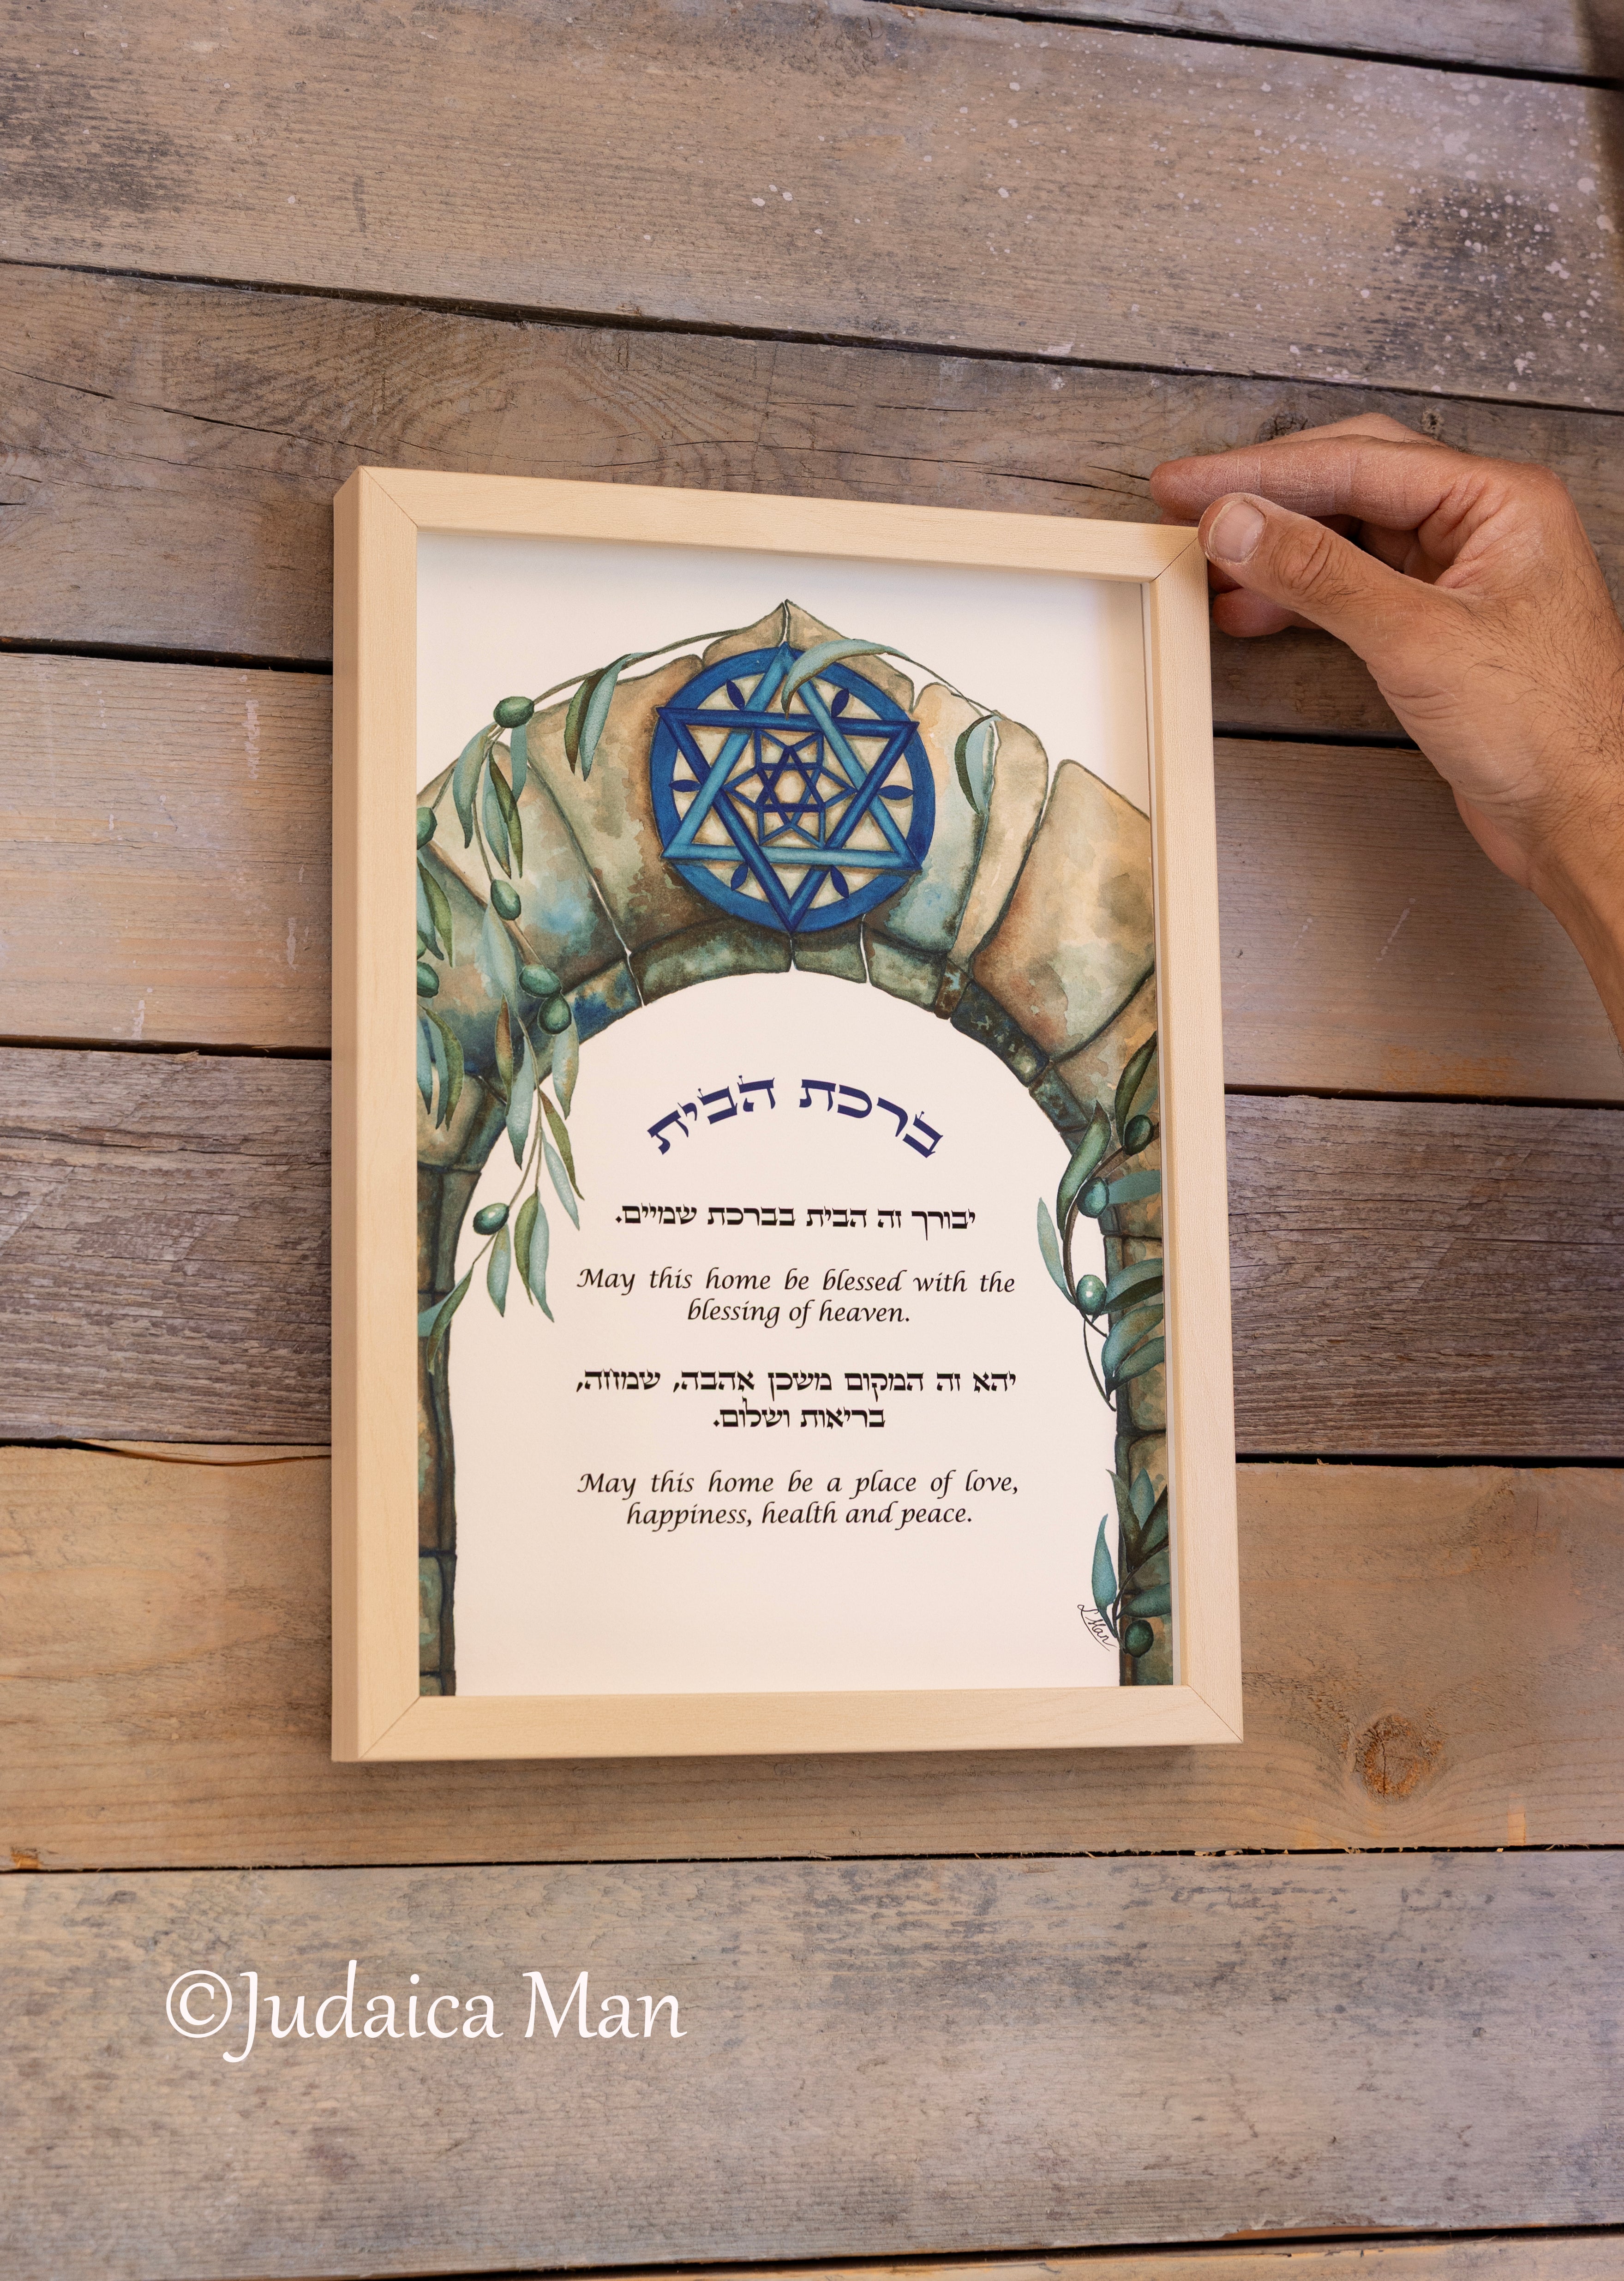 ברכת הבית
יבורך זה הבית בברכת שמיים.
May this home be blessed with the
blessing of heaven.
יהא זה המקום משכן אהבה, שמחה,
בריאות ושלום.
May this home be a place of love,
happiness, health and peace.
L Man
©Judaica Man